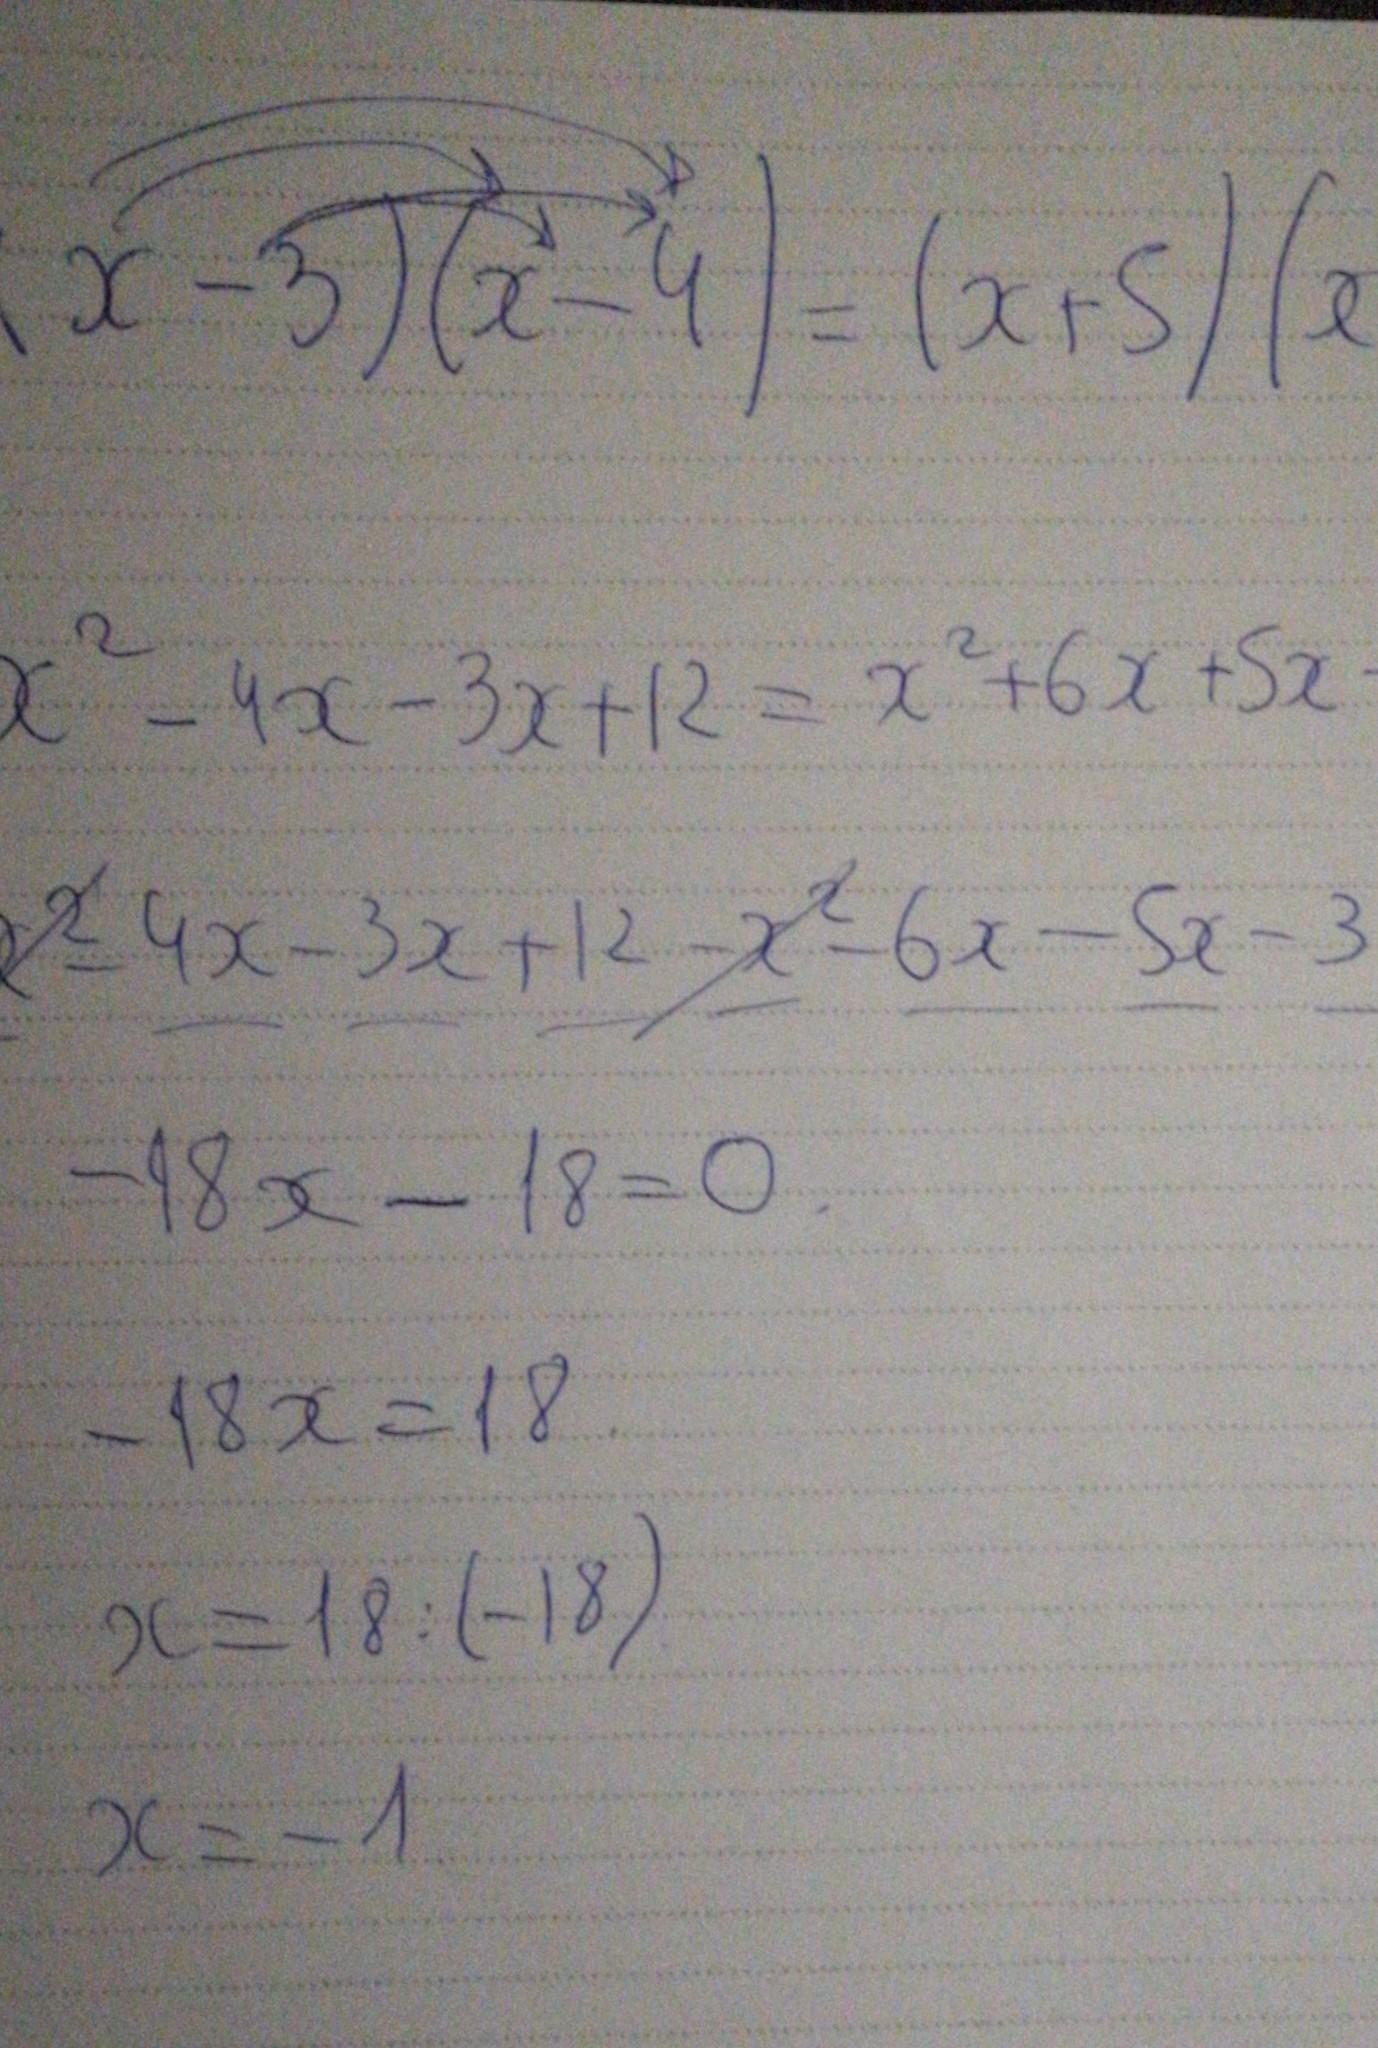 (x-3)(x-4)=(x+5)(x
x²-4x-3x+12=x²+6x+5x
x²-4x-3x+12-x²-6x-5x-3
-18x-18=0
-18x=18
x=18:(-18)
x=-1